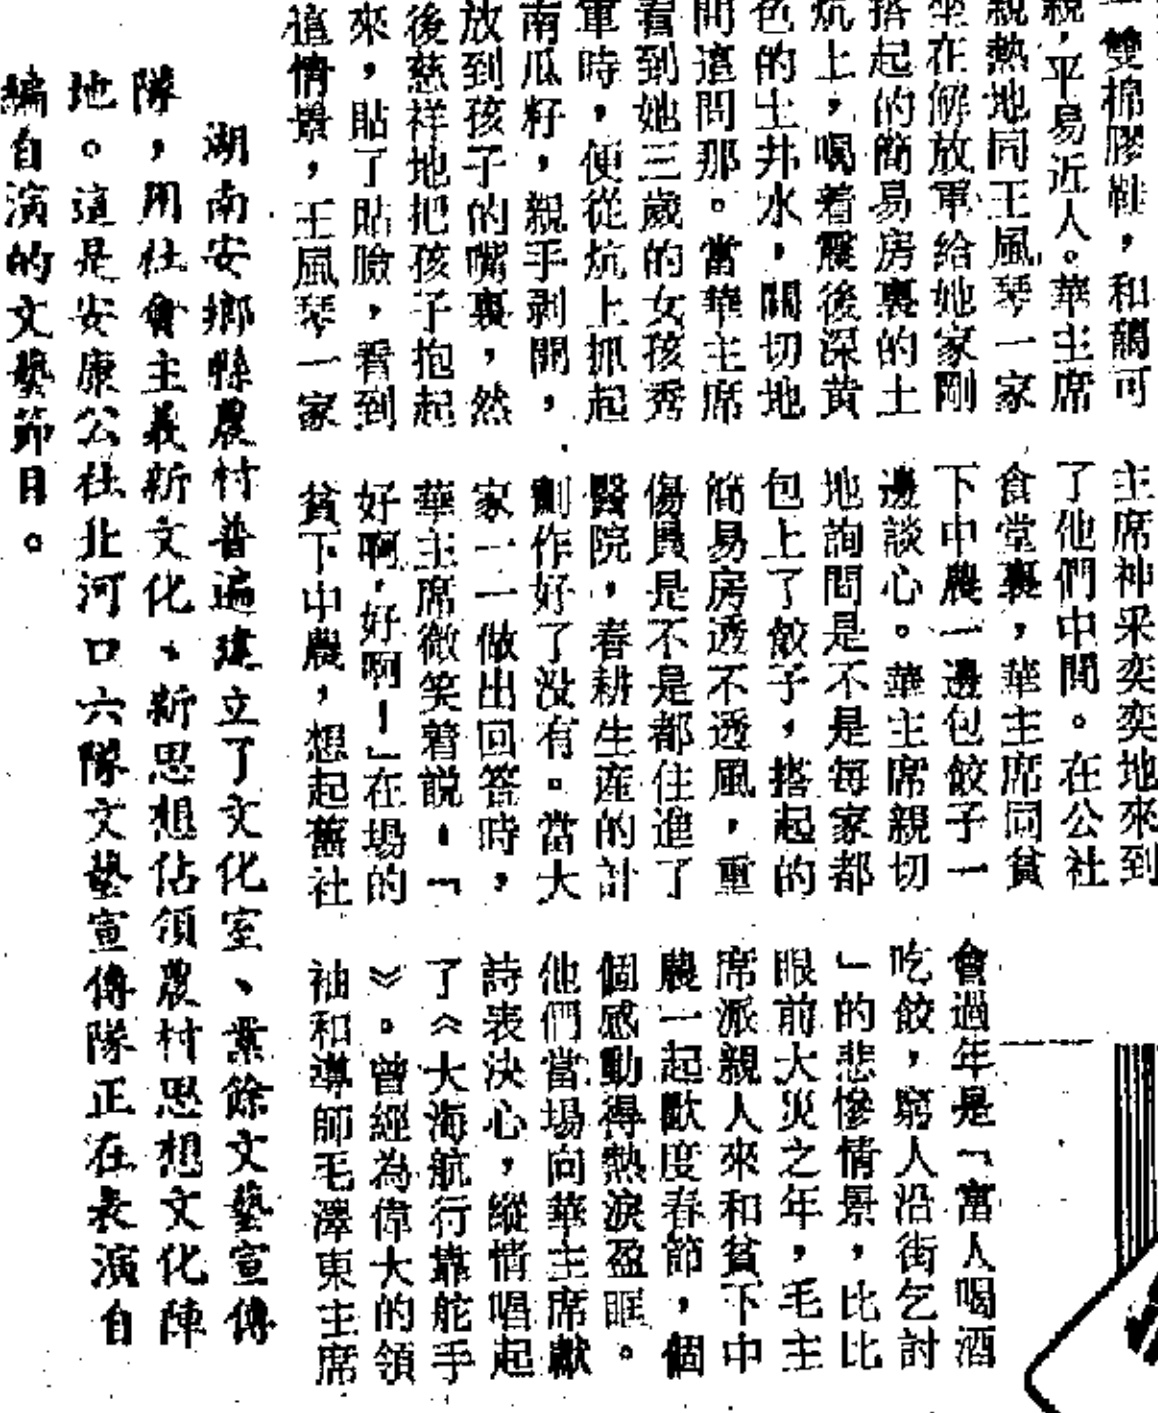 雙棉膠鞋,和藹可
親,平易近人。華主席
親熱地同王風琴一家
坐在解放軍給她家剛
搭起的簡易房裏的土
炕上,喝着震後深黃
色的土井水,關切地
問這問那。當華主席
看到她三歲的女孩秀
軍時,便從炕上抓起
南瓜籽,親手剥開,
放到孩子的嘴裏,然
後慈祥地把孩子抱起
來,貼了貼臉,看到
這情景,王風琴一家
主席神采奕奕地來到
了他們中間。在公社
食堂裏,華主席同貧
下中農一邊包餃子一
邊談心。華主席親切
地詢問是不是每家都
包上了餃子,搭起的
簡易房透不透風,重
傷員是不是都住進了
醫院,春耕生產的計
劃作好了没有。當大
家一一做出回答時,
華主席微笑着説:「
好啊,好啊!」在場的
貧下中農,想起舊社
會過年是「富人喝酒
吃餃,窮人沿街乞討
」的悲慘情景,比比
眼前大災之年,毛主
席派親人來和貧下中
農一起歡度春節,個
個感動得熱淚盈眶。
他們當場向華主席獻
詩表決心,縱情唱起
了《大海航行靠舵手
》。曾經為偉大的領
袖和導師毛澤東主席
湖南安鄉縣農村普遍建立了文化室、業餘文藝宣傳
隊,用社會主義新文化、新思想佔領農村思想文化陣
地。這是安康公社北河口六隊文藝宣傳隊正在表演自
編自演的文藝節目。